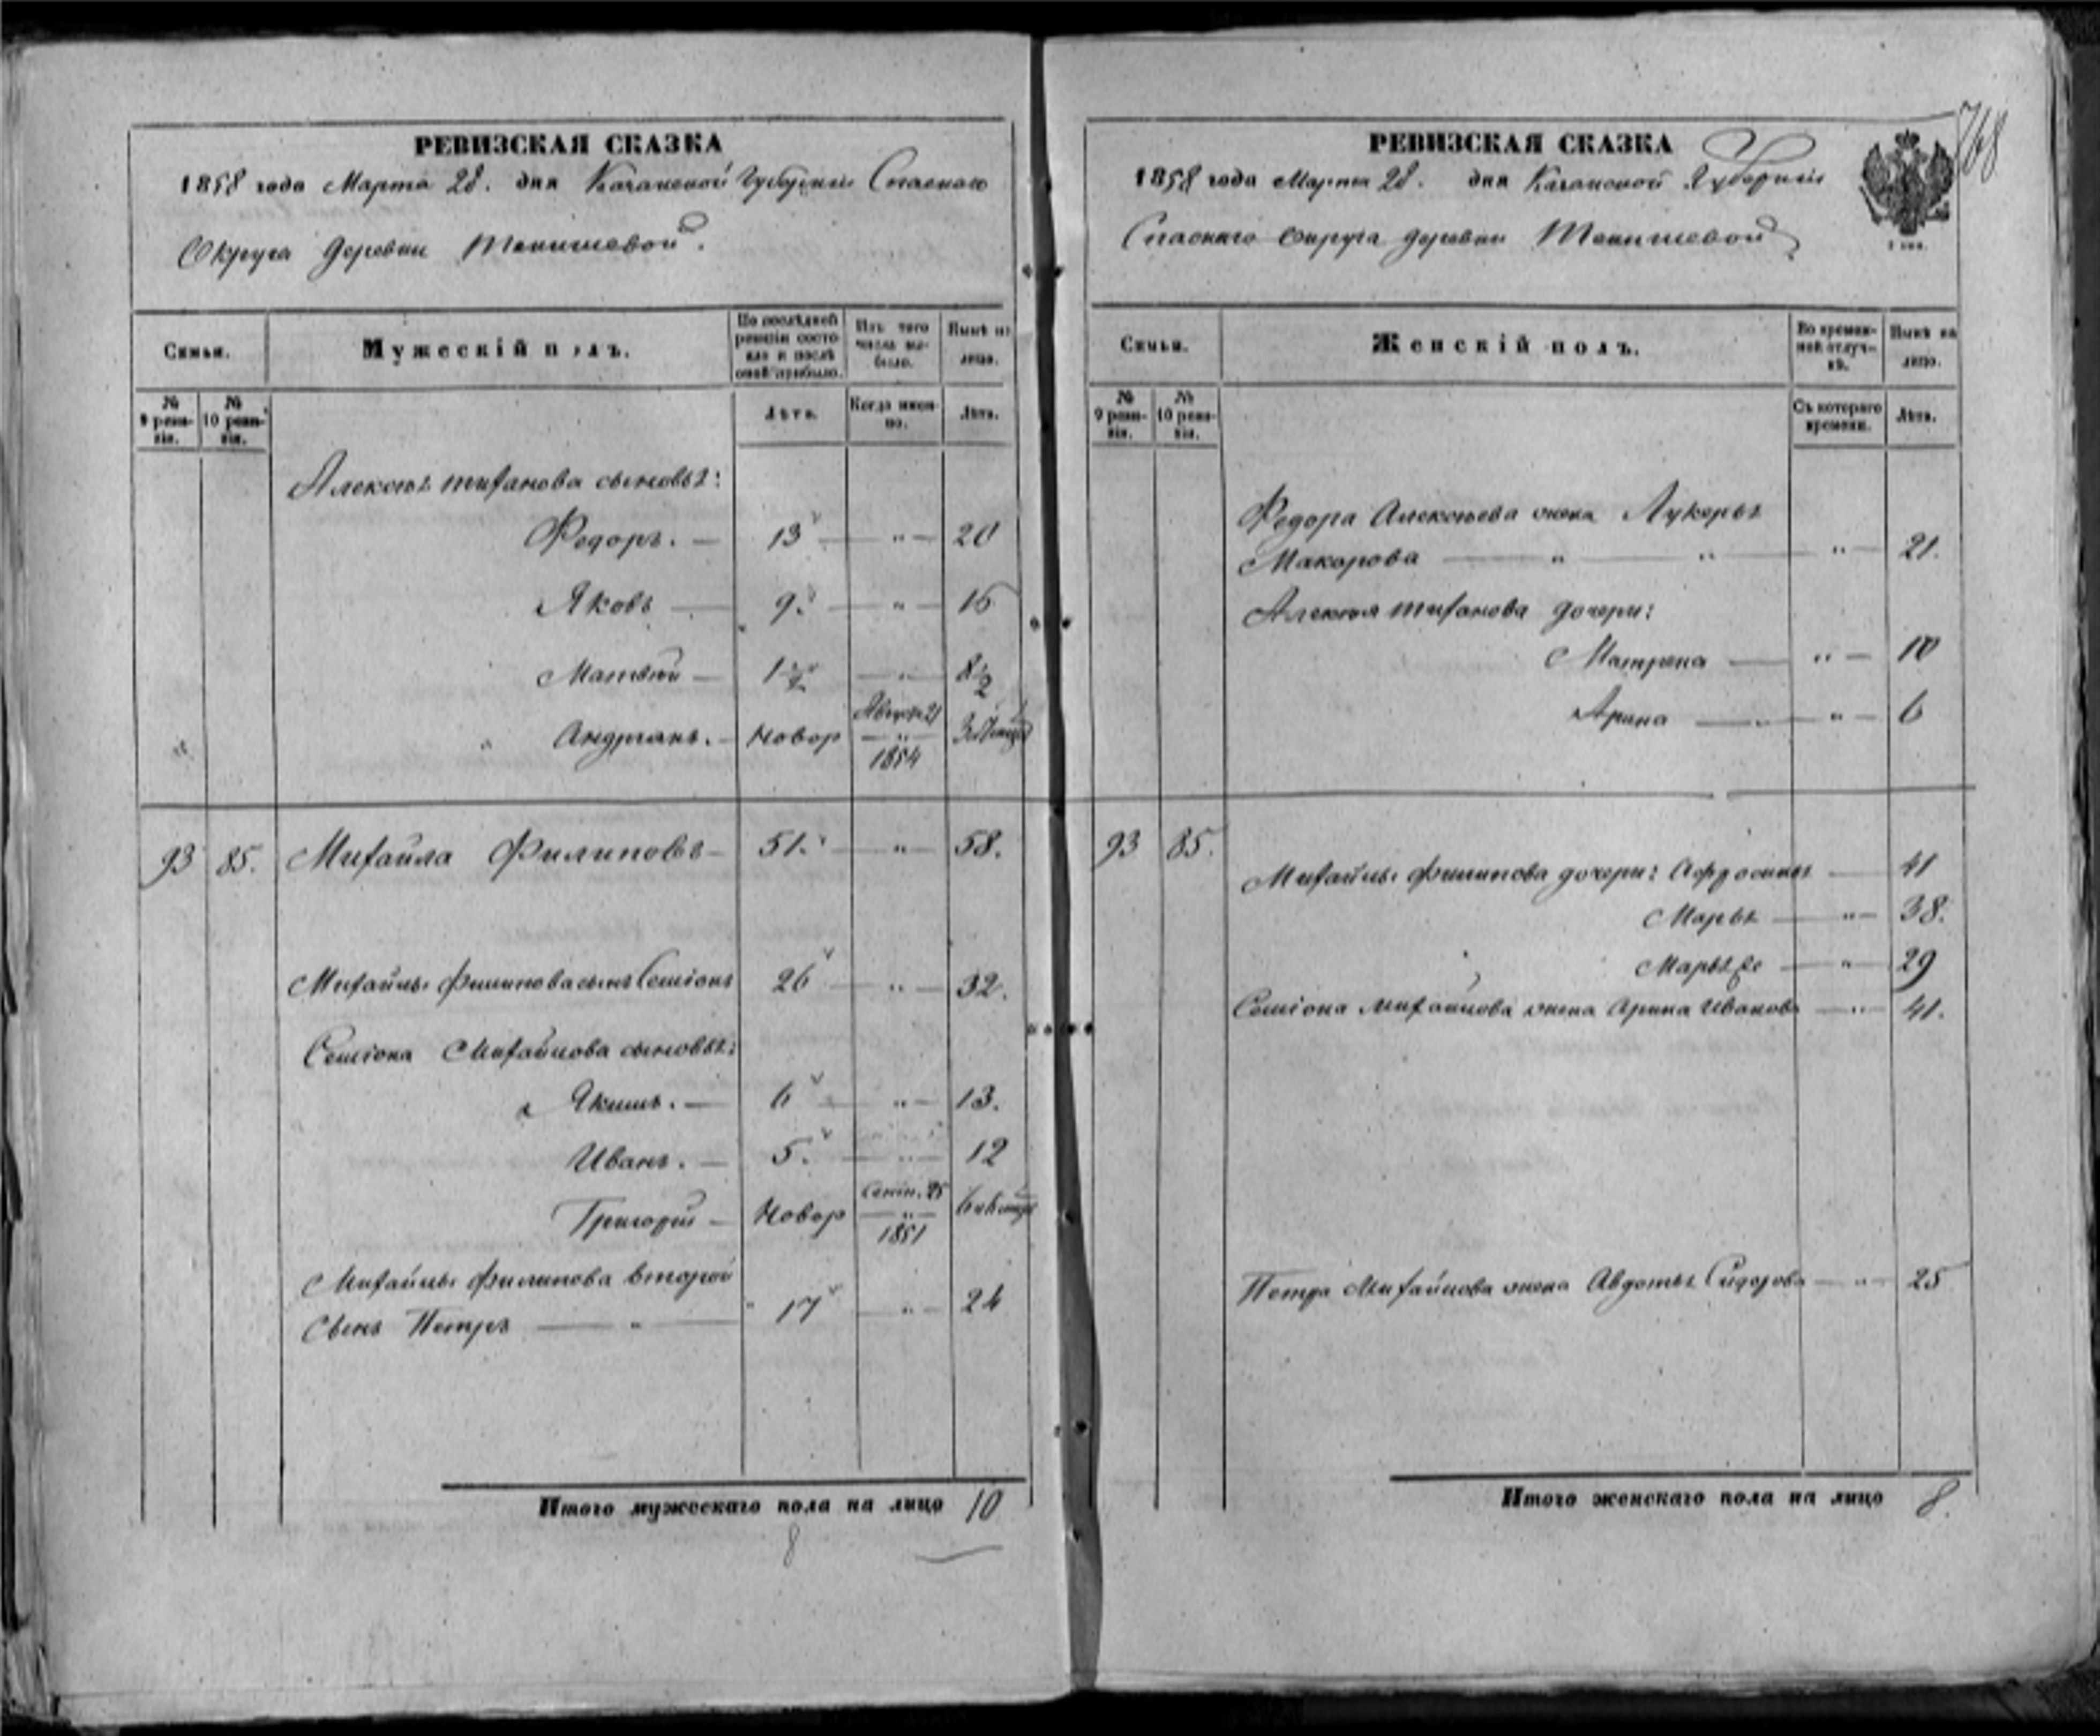 РЕВИЗСКАЯ СКАЗКА
1858 года Марта 28. дня Казанской Губернии Спаскаго
Округа деревни Тенишевой.
Семьи.
Мужескій полъ.
По послѣдней ревизіи состояло и послѣ оной прибыло.
Изъ того числа выбыло.
Нынѣ на лицо.
№ 9 ревизіи.
№ 10 ревизіи.
Лѣта.
Когда именно.
Лѣта.
Алексѣя тифанова сыновья:
Федоръ. — 13 — „ — 20
Яковъ — 9. — „ — 16
Матвѣй — 1½ — „ — 8½
Андрianъ. — Новор Август 21 1854
93 85. Михайла Филиповъ — 51. — „ — 58.
Михайлы Филипова сынъ Семіонъ 26 — „ — 32.
Семіона Михайлова сыновья:
Якимъ. — 6 — „ — 13.
Иванъ. — 5. — „ — 12
Григорій — Новор Сентя. 25 1851
Михайлы Филипова второй
Сынъ Петръ — „ 17 — „ — 24
Итого мужескаго пола на лицо 10
8
768
РЕВИЗСКАЯ СКАЗКА
1858 года Марта 28. дня Казанской Губерніи
Спаскаго округа деревни Тенишевой
Семьи.
Женскій полъ.
Во временной отлучкѣ.
Нынѣ на лицо.
№ 9 ревизіи.
№ 10 ревизіи.
Съ котораго времени.
Лѣта.
Федора Алексѣева жена Лукерья
Макарова — „ — „ — „ — 21.
Алексѣя тифанова дочери:
Матрена — „ — 10
Арина — „ — „ — 6
93 85.
Михайлы Филипова дочери: Афросинья — 41
Марья — „ — 38.
Марья 2е — „ — 29
Семіона Михайлова жена Арина Иванова — „ — 41.
Петра Михайлова жена Авдотья Сидорова — „ — 25
Итого женскаго пола на лицо 8.